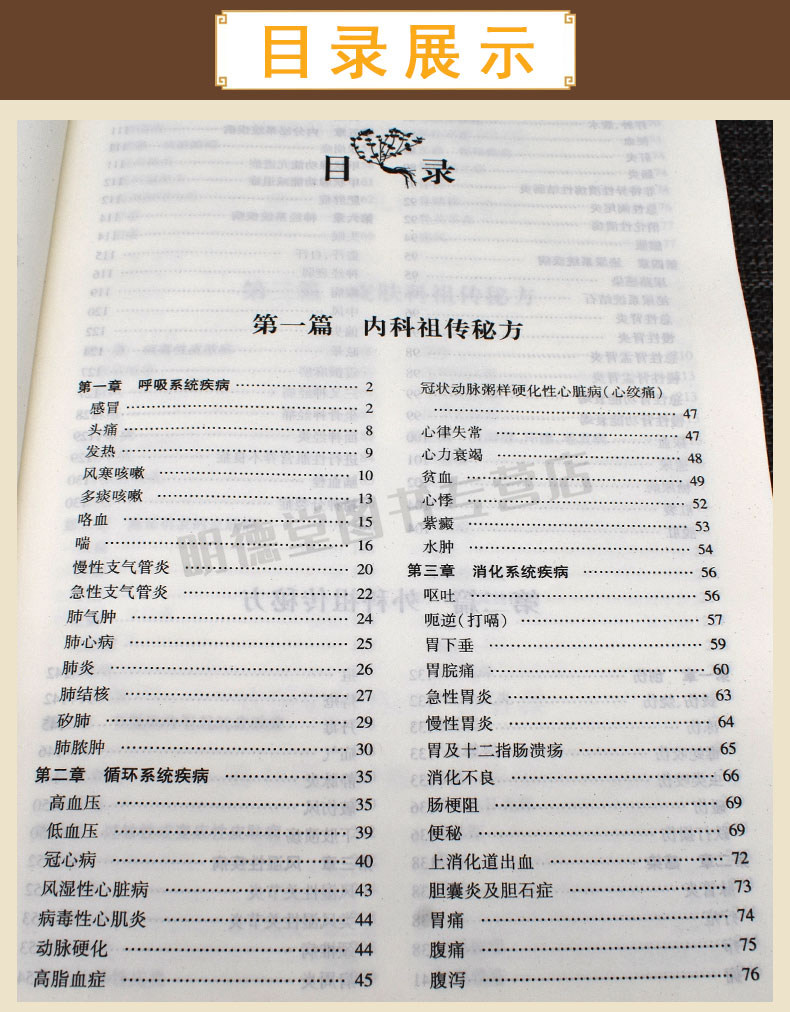 目录展示
目录
第一篇 内科祖传秘方
第一章 呼吸系统疾病 2
感冒 2
头痛 8
发热 9
风寒咳嗽 10
多痰咳嗽 13
咯血 15
喘 16
慢性支气管炎 20
急性支气管炎 22
肺气肿 24
肺心病 25
肺炎 26
肺结核 27
矽肺 29
肺脓肿 30
第二章 循环系统疾病 35
高血压 35
低血压 39
冠心病 40
风湿性心脏病 43
病毒性心肌炎 44
动脉硬化 44
高脂血症 45
冠状动脉粥样硬化性心脏病(心绞痛)
47
心律失常 47
心力衰竭 48
贫血 49
心悸 52
紫癜 53
水肿 54
第三章 消化系统疾病 56
呕吐 56
呃逆(打嗝) 57
胃下垂 59
胃脘痛 60
急性胃炎 63
慢性胃炎 64
胃及十二指肠溃疡 65
消化不良 66
肠梗阻 69
便秘 69
上消化道出血 72
胆囊炎及胆石症 73
胃痛 74
腹痛 75
腹泻 76
明德堂图书专营店